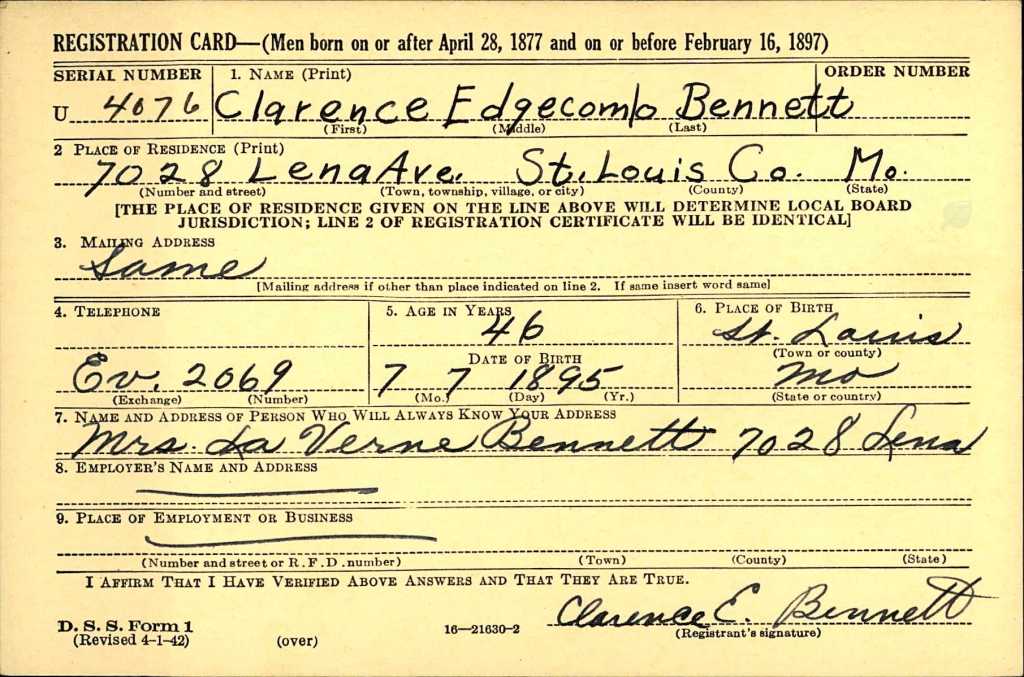 REGISTRATION CARD—(Men born on or after April 28, 1877 and on or before February 16, 1897)
SERIAL NUMBER 1. NAME (Print) ORDER NUMBER
U 4076 Clarence Edgecomb Bennett
(First) (Middle) (Last)
2 PLACE OF RESIDENCE (Print)
7028 Lena Ave. St. Louis Co. Mo.
(Number and street) (Town, township, village, or city) (County) (State)
[THE PLACE OF RESIDENCE GIVEN ON THE LINE ABOVE WILL DETERMINE LOCAL BOARD
JURISDICTION; LINE 2 OF REGISTRATION CERTIFICATE WILL BE IDENTICAL]
3. MAILING ADDRESS
Same
[Mailing address if other than place indicated on line 2. If same insert word same]
4. TELEPHONE 5. AGE IN YEARS 6. PLACE OF BIRTH
46 St. Louis
DATE OF BIRTH (Town or county)
Ev. 2069 7 7 1895 Mo
(Exchange) (Number) (Mo.) (Day) (Yr.) (State or country)
7. NAME AND ADDRESS OF PERSON WHO WILL ALWAYS KNOW YOUR ADDRESS
Mrs. La Verne Bennett 7028 Lena
8. EMPLOYER'S NAME AND ADDRESS
9. PLACE OF EMPLOYMENT OR BUSINESS
(Number and street or R. F. D. number) (Town) (County) (State)
I AFFIRM THAT I HAVE VERIFIED ABOVE ANSWERS AND THAT THEY ARE TRUE.
Clarence E. Bennett
D. S. S. Form 1 16—21630-2 (Registrant's signature)
(Revised 4-1-42) (over)